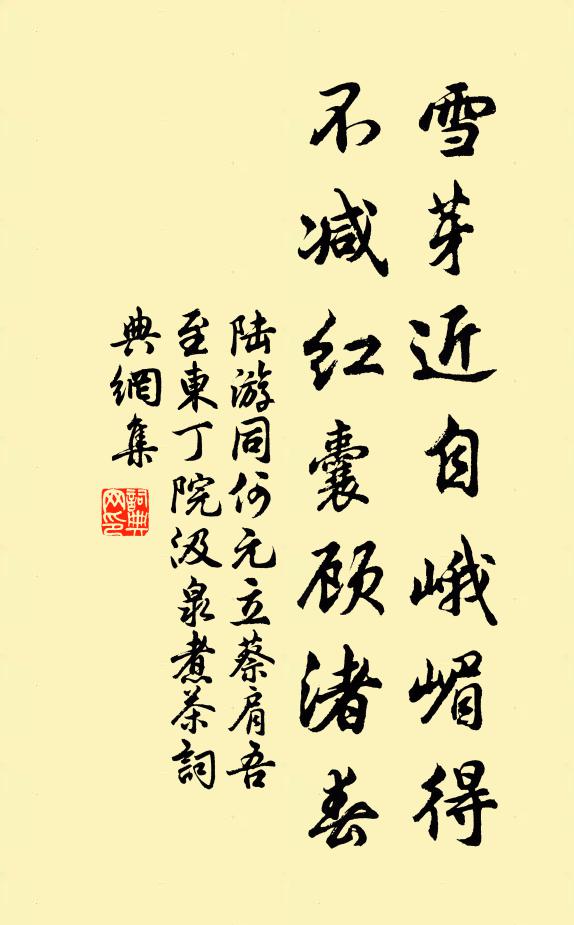 雪芽近自峨嵋得
不减红囊顾渚春
陆游同何元立蔡肩吾
至東丁院汲泉煮茶詞
典網集
詞典网印